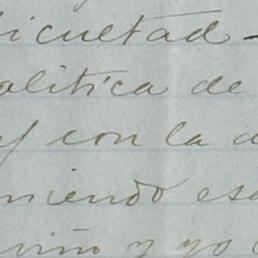 ficultad -
olitica de
y con la d
niendo esa
vino y yo